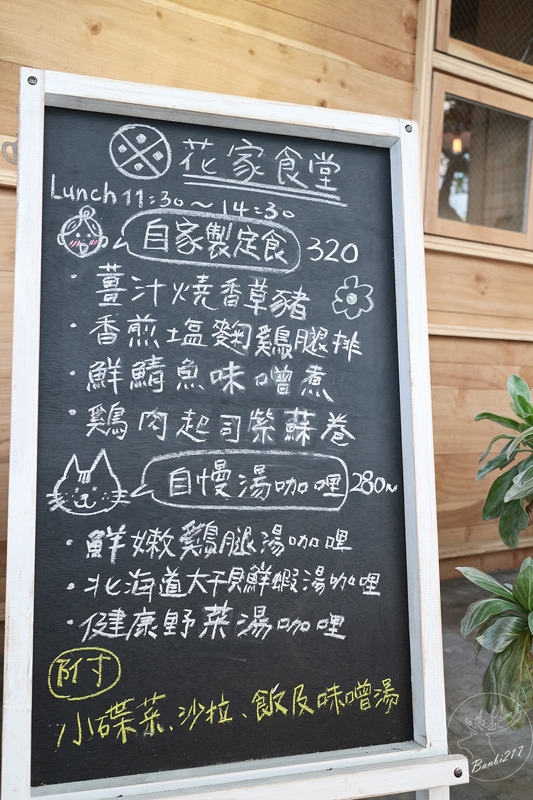 花家食堂
Lunch 11:30～14:30
自家製定食 320
・薑汁燒香草豬
・香煎塩麴鷄腿排
・鮮鯖魚味噌煮
・鷄肉起司紫蘇卷
自慢湯咖哩 280~
・鮮嫩鷄腿湯咖哩
・北海道大干貝鮮蝦湯咖哩
・健康野菜湯咖哩
附寸
小碟菜、沙拉、飯及味噌湯
Banbi217